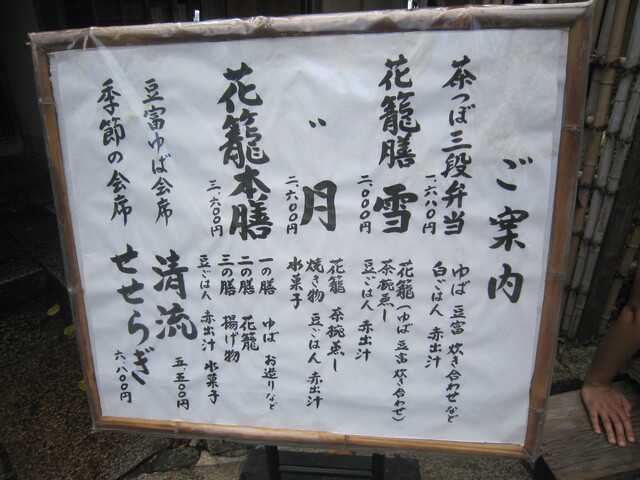 ご案内
茶つぼ三段弁当
一、六八〇円
ゆば 豆富 炊き合わせなど
白ごはん 赤出汁
花籠膳 雪
二、〇〇〇円
花籠(ゆば 豆富 炊き合わせ)
茶椀蒸し
豆ごはん 赤出汁
〃 月
二、六〇〇円
花籠 茶椀蒸し
焼き物 豆ごはん 赤出汁
水菓子
花籠本膳
三、六〇〇円
一の膳 ゆば お造りなど
二の膳 花籠
三の膳 揚げ物
豆ごはん 赤出汁 水菓子
豆富ゆば会席 清流
五、五〇〇円
季節の会席 せせらぎ
六、八〇〇円